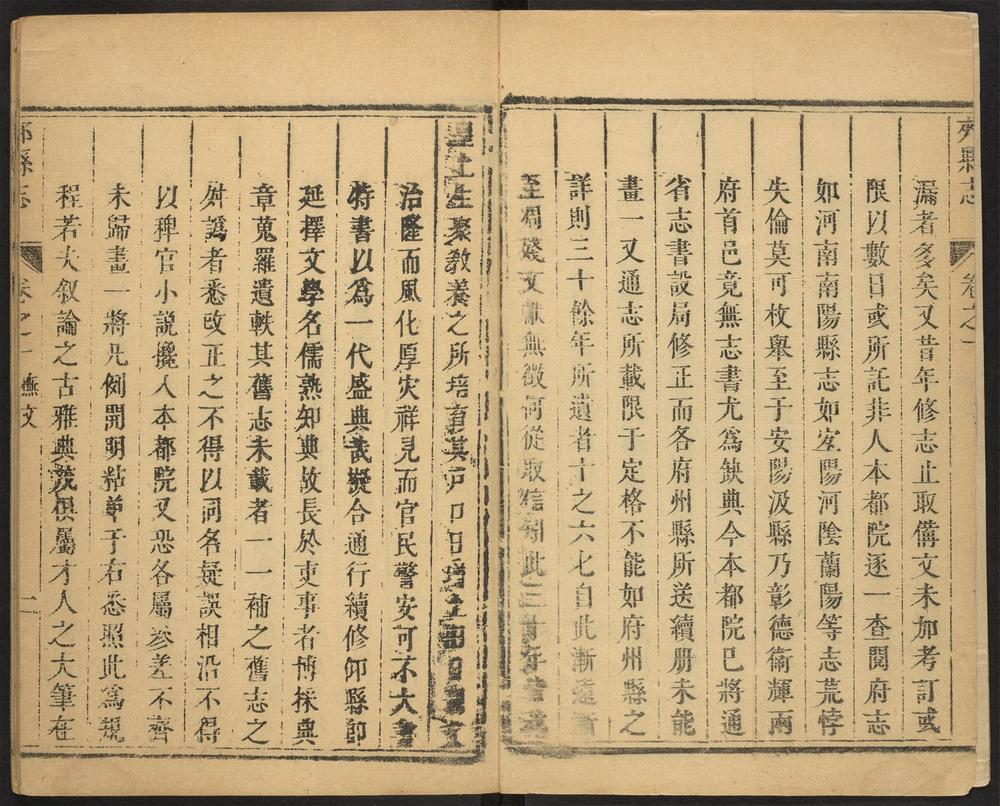 縣志
卷之一
漏者多矣又昔年修志止取備文未加考訂或
限以數日或所託非人本都院逐一查閱府志
如河南南陽縣志如宜陽河陰蘭陽等志荒悖
失倫莫可枚舉至于安陽汲縣乃彰德衛輝兩
府首邑竟無志書尤爲缺典今本都院已將通
省志書設局修正而各府州縣所送續册未能
畫一又通志所載限于定格不能如府州縣之
詳則三十餘年所遺者十之六七自此漸遠漸
至凋殘文獻無徵何從取信知此三十年皆
聖上生聚敎養之所培育其戶口日增土田日闢文
治隆而風化厚灾祥見而官民警安可不大書
特書以爲一代盛典哉擬合通行續修仰縣卽
延擇文學名儒熟知典故長於吏事者博採典
章蒐羅遺軼其舊志未載者一一補之舊志之
舛譌者悉改正之不得以同名疑誤相沿不得
以稗官小說攙入本都院又恐各屬參差不齊
未歸畫一將凡例開明粘單于右悉照此爲規
程若夫叙論之古雅典茂俱屬才人之大筆在
縣志
卷之一
燕文
二